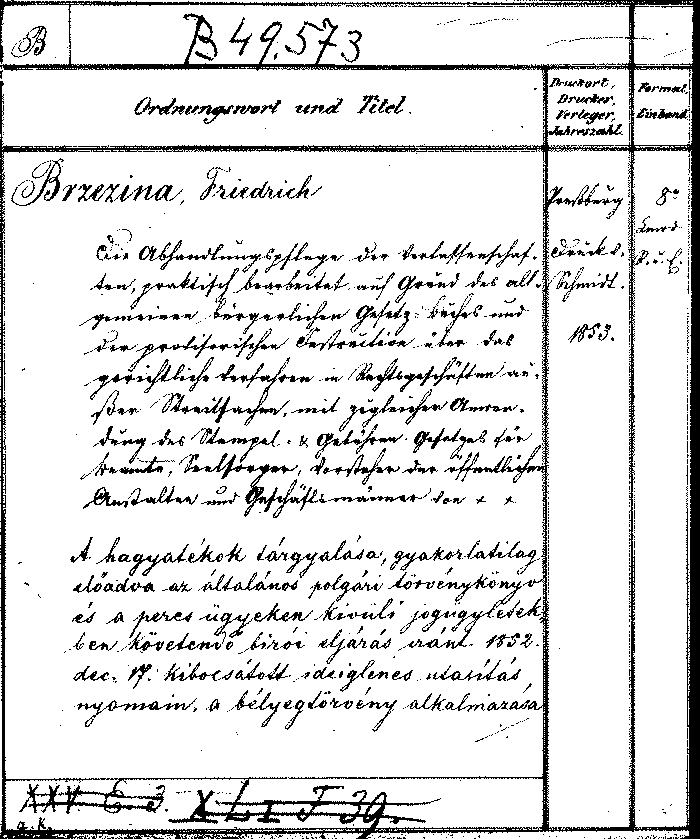 B
B 49.573
Ordnungswort und Titel.
Druckort,
Drucker,
Verleger,
Jahreszahl.
Format,
Einband.
Brzezina, Friedrich
Die Abhandlungspflege der Verlassenschaf-
ten, praktisch bearbeitet auf Grund des all-
gemeinen bürgerlichen Gesetz-buches und
der provisorischen Instruction über das
gerichtliche Verfahren in Rechtsgeschäften au-
ßer Streitsachen, mit zugleicher Anwen-
dung des Stempel- & Gebühren-Gesetzes für
Beamte, Seelsorger, Vorsteher der öffentlichen
Anstalten und Geschäftsmänner von × ×
A hagyatékok tárgyalása, gyakorlatilag
előadva az általános polgári törvénykönyv
és a peres ügyeken kívüli jogügyletek-
ben követendő birói eljárás iránt 1852.
dec. 17. kibocsátott ideiglenes utasítás
nyomain, a bélyegtörvény alkalmazása
Preßburg.
Druck v.
Schmidt.
1853.
8°
R. u. E.
XXV. E. 3. XLI F 39.
a. k.